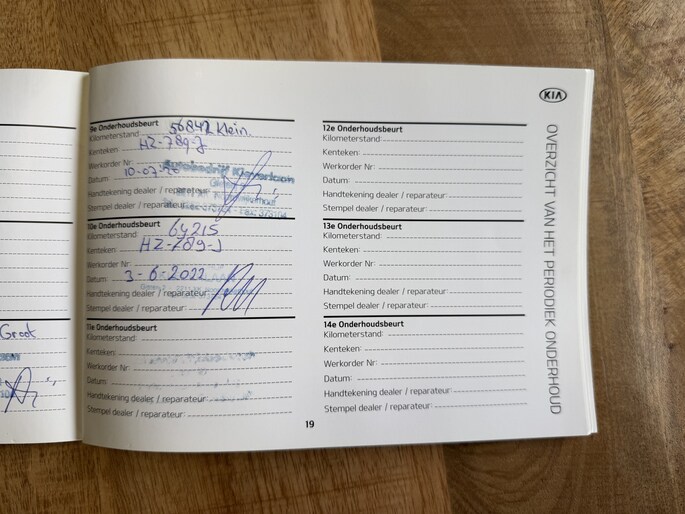 Groot
9e Onderhoudsbeurt
Kilometerstand: 56842 Klein.
Kenteken: HZ-789-J
Werkorder Nr:
Datum: 10-07-'20
Handtekening dealer / reparateur:
Stempel dealer / reparateur:
10e Onderhoudsbeurt
Kilometerstand: 64215
Kenteken: HZ-789-J
Werkorder Nr:
Datum: 3-6-2022
Handtekening dealer / reparateur:
Stempel dealer / reparateur:
11e Onderhoudsbeurt
Kilometerstand:
Kenteken:
Werkorder Nr:
Datum:
Handtekening dealer / reparateur:
Stempel dealer / reparateur:
12e Onderhoudsbeurt
Kilometerstand:
Kenteken:
Werkorder Nr:
Datum:
Handtekening dealer / reparateur:
Stempel dealer / reparateur:
13e Onderhoudsbeurt
Kilometerstand:
Kenteken:
Werkorder Nr:
Datum:
Handtekening dealer / reparateur:
Stempel dealer / reparateur:
14e Onderhoudsbeurt
Kilometerstand:
Kenteken:
Werkorder Nr:
Datum:
Handtekening dealer / reparateur:
Stempel dealer / reparateur:
KIA
OVERZICHT VAN HET PERIODIEK ONDERHOUD
19